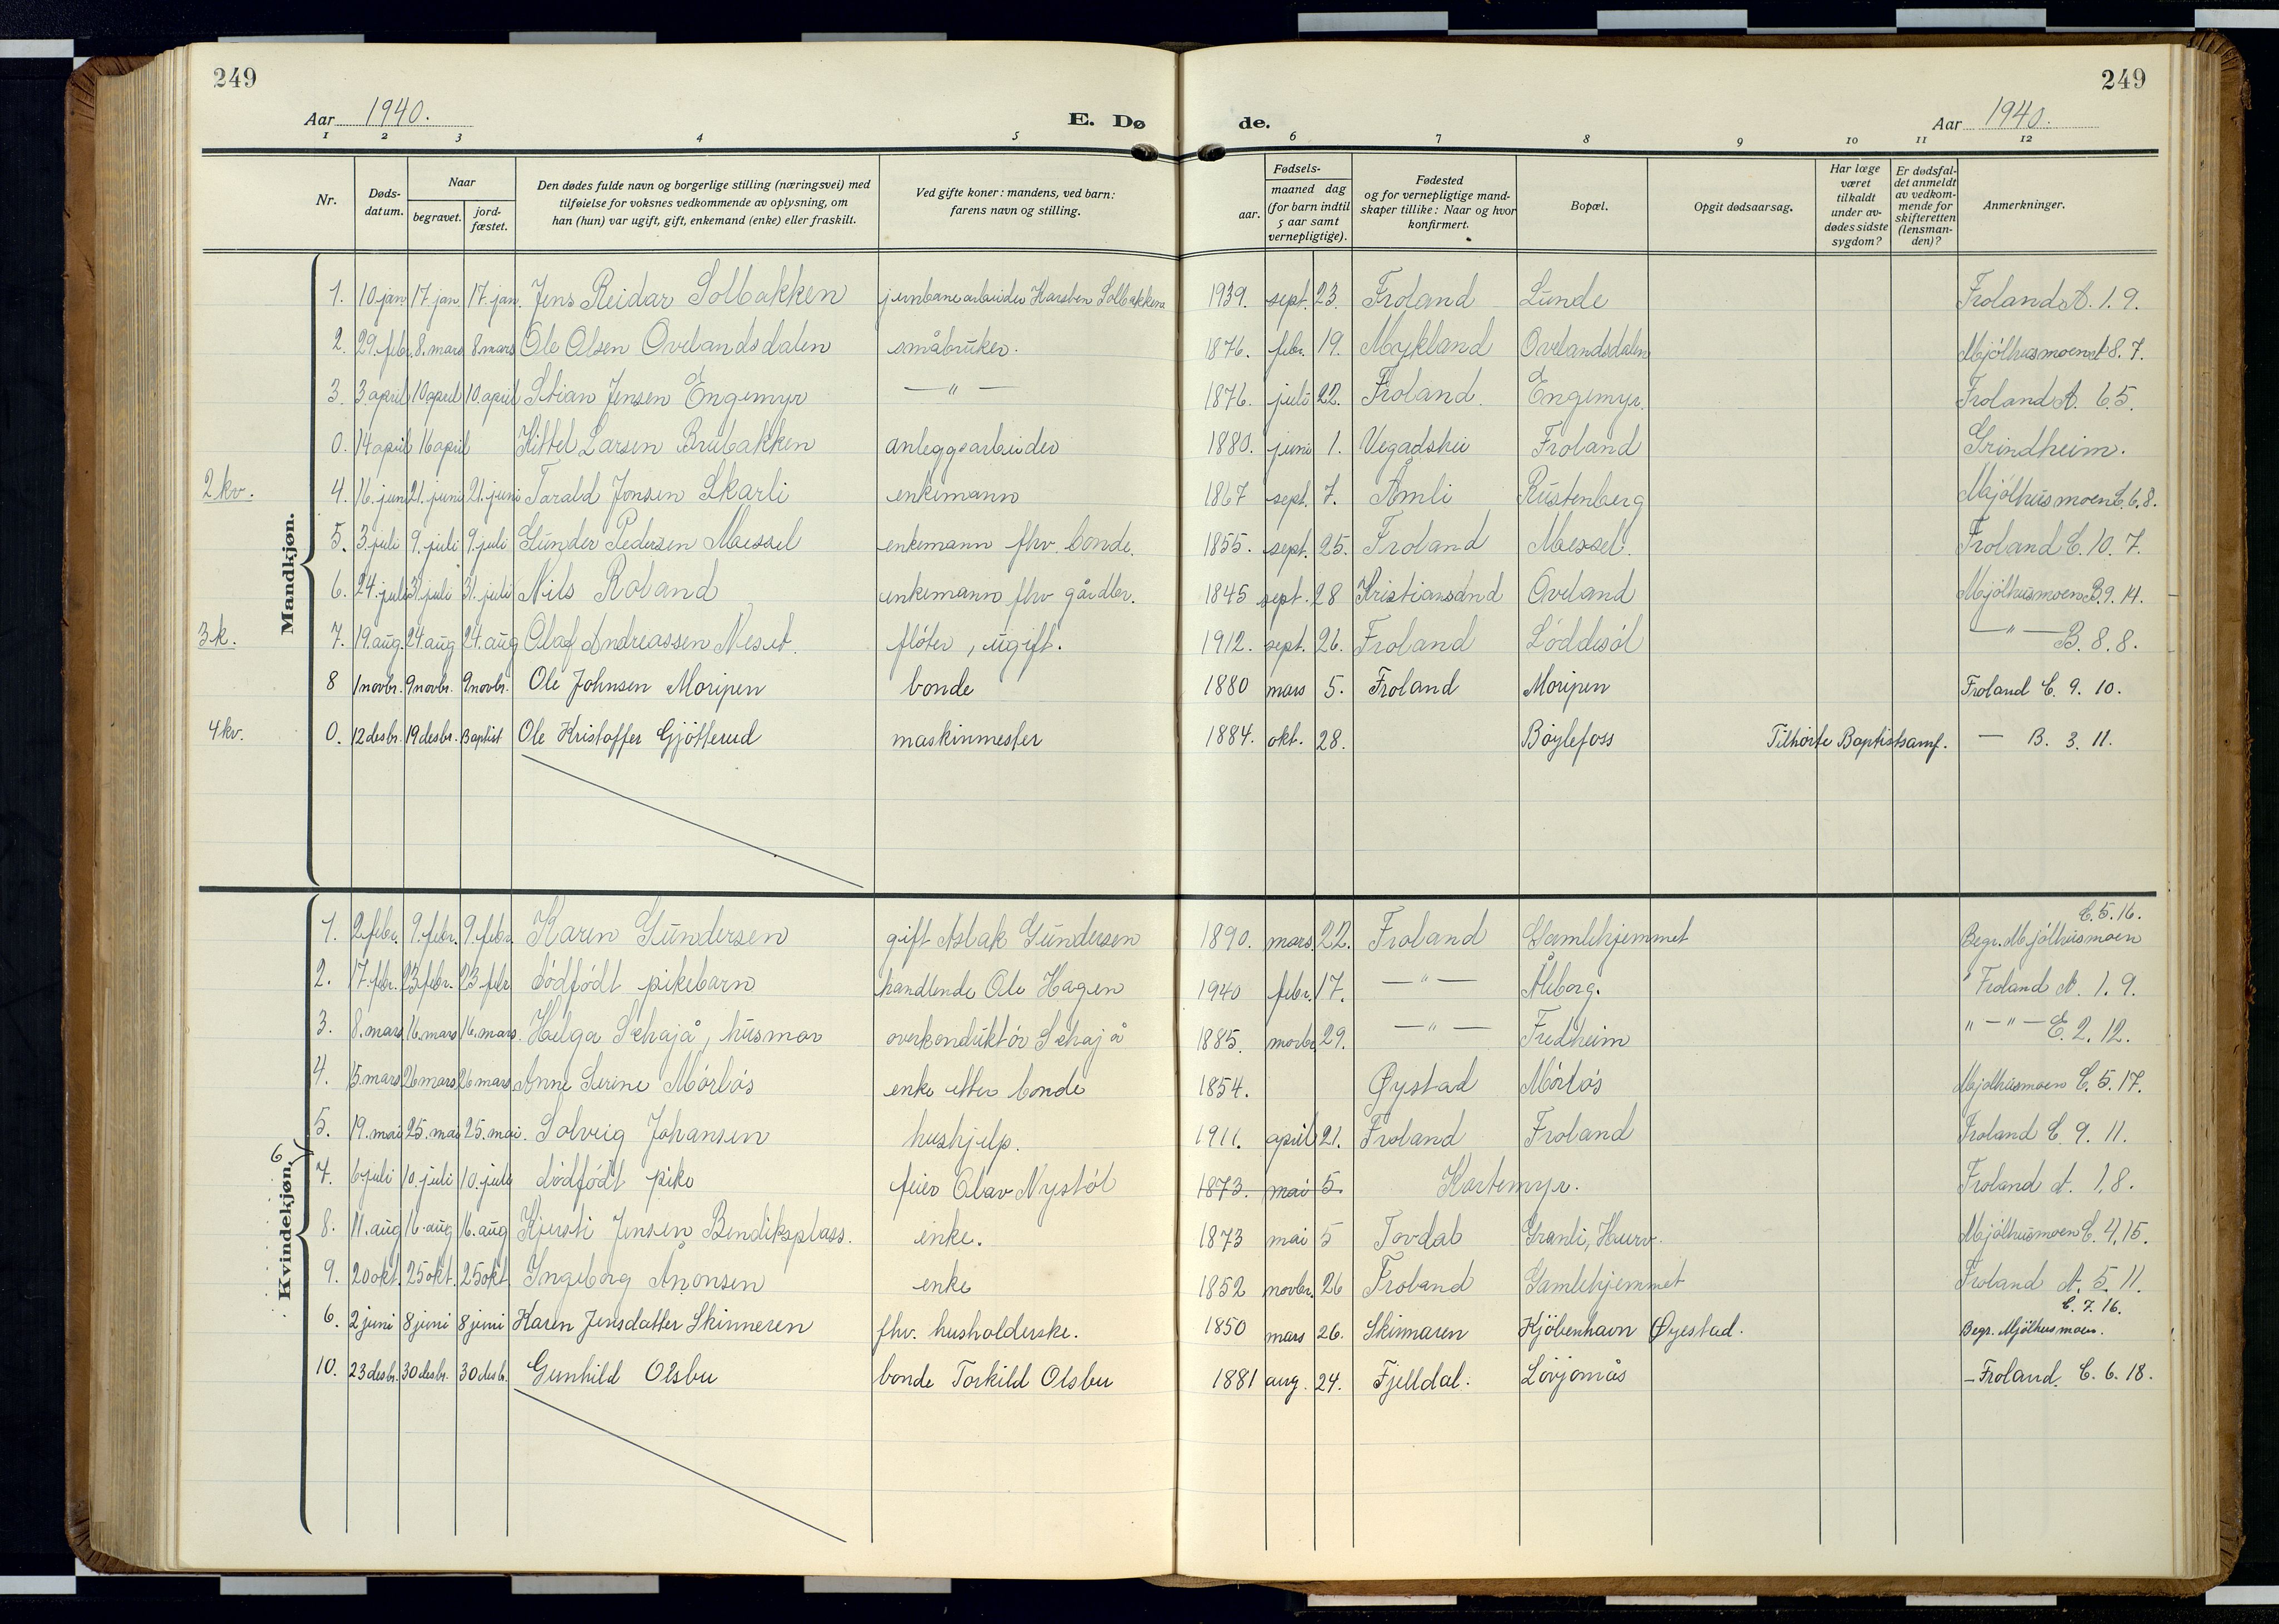 249
249
Aar 1940.
E. Dø
de.
Aar 1940.
1 2 3 4 5 6 7 8 9 10 11 12
Nr.
Døds-
datum.
Naar
begravet.
jord-
fæstet.
Den dødes fulde navn og borgerlige stilling (næringsvei) med
tilføielse for voksnes vedkommende av oplysning, om
han (hun) var ugift, gift, enkemand (enke) eller fraskilt.
Ved gifte koner: mandens, ved barn:
farens navn og stilling.
Fødsels-
aar.
maaned dag
(for barn indtil
5 aar samt
vernepligtige).
Fødested
og for vernepligtige mand-
skaper tillike: Naar og hvor
konfirmert.
Bopæl.
Opgit dødsaarsag.
Har læge
været
tilkaldt
under av-
dødes sidste
sygdom?
Er dødsfal-
det anmeldt
av vedkom-
mende for
skifteretten
(lensman-
den)?
Anmerkninger.
Mandkjøn.
1. 10 jan. 17. jan. 17. jan. Jens Reidar Solbakken jernbanearbeider Solbakken 1939. sept. 23. Froland Lunde Froland A. 1. 9.
2. 29. febr. 8. mars 8. mars Ole Olsen Ovelandsdalen småbruker. 1876. febr. 19. Mykland Ovelandsdalen Mjölhusmoen A 8. 7.
3. 3. april 10 april 10. april Stian Jensen Engemyr — " — 1876. juli 22. Froland. Engemyr. Froland A. 6.5.
0. 14 april 16 april Kittel Larsen Brubakken anleggsarbeider 1880. juni 1. Vegadshei Froland Grindheim.
2 kv. 4. 16. juni 21. juni 21. juni Tarald Jonsen Skarli enkemann 1867 sept. 7. Åmli Rustenberg Mjölhusmoen C. 6. 8.
5. 3. juli 9. juli 9. juli Gunder Pedersen Messel enkemann fhv. bonde. 1855. sept. 25. Froland Messel. Froland C. 10. 7.
6. 24. juli 31. juli 31. juli Nils Roland enkemann fhv gårdbr. 1845 sept. 28 Kristiansand Oveland Mjölhusmoen B. 9. 14.
3 k. 7. 19. aug. 24 aug 24. aug Olaf Andreassen Neset. flöter, ugift. 1912. sept. 26. Froland Löddesöl — " — B. 8. 8.
8 1 novbr. 9 novbr. 9 novbr. Ole Johnsen Moripen bonde 1880 mars 5. Froland Moripen Froland C. 9. 10.
4 kv. 0. 12 desbr. 19 desbr. Baptist Ole Kristoffer Gjötterud maskinmester 1884. okt. 28. Böylefoss Tilhörte Baptistsamf. — B. 3. 11.
Kvindekjøn.
6
C. 5. 16.
1. 2 febr. 9. febr. 9. febr. Karen Gundersen gift Aslak Gundersen 1890. mars 22. Froland Gamlehjemmet Begr. Mjölhusmoen
2. 17. febr. 23 febr. 23. febr dödfödt pikebarn handlende Ole Hagen 1940 febr. 17. — " — Ålborg. " Froland A. 1. 9.
3. 8. mars 16. mars 16. mars. Helga Schajå, husmor overkonduktör Schajå 1885. 29. — " — Fredheim " — " — E. 2. 12.
4. 15. mars 26 mars 26 mars Anne Serine Mörlös enke etter bonde 1854. Öystad Mörlös Mjölhusmoen C. 5. 17.
5. 19. mai 25. mai 25. mai. Solveig Johansen hushjelp. 1911. april 21. Froland Froland Froland C. 9. 11.
7. 6 juli 10. juli 10. juli dödfödt pike feier Olav Nystöl 1873. mai 5. Kartemyr. Froland A. 1. 8.
8. 11. aug 16. aug 16. aug Kjersti Jensen Bendiksplass. enke. 1873 mai 5 Tovdal Granli, Hurv. Mjölhusmoen C. 4, 15.
9. 20 okt. 25 okt. 25 okt Ingeborg Anonsen enke 1852 novbr. 26 Froland Gamlehjemmet Froland A. 5. 11.
C. 7. 16.
6. 2 juni 8 juni 8 juni Karen Jensdatter Skinneren fhv. husholderske. 1850 mars 26. Skinnaren Kjöbenhavn Øyestad. Begr. Mjölhusmoen.
10. 23 desbr. 30 desbr. 30 desb. Gunhild Olsbu bonde Torkild Olsbu 1881 aug. 24. Fjelldal. Lövjomås - Froland. C. 6. 18.